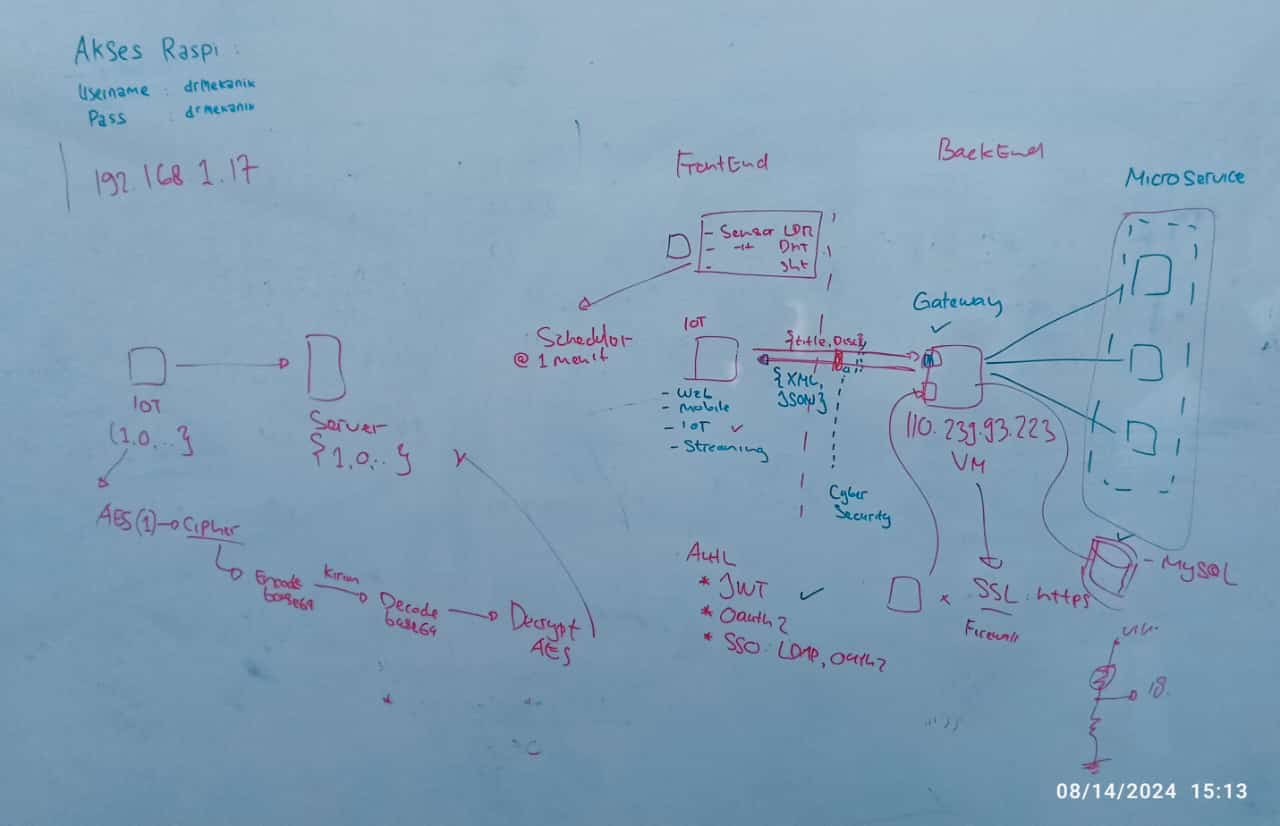 Akses Raspi :
Username : drmekanik
Pass : drmekanik
192.168.1.17
FrontEnd
BackEnd
MicroService
- Sensor LDR
- -11- DHT
-
Schedulor
@ 1 menit
IoT
{title, Disc}
{XML,
JSON}
- Web
- Mobile
- IoT ✓
- Streaming
Gateway
✓
110.239.93.223
VM
Cyber
Security
IoT
{1,0,..}
Server
{1,0,..}
AES(1) → Cipher
Encode
base64
Kirim
Decode
base64
Decrypt
AES
Auth
* JWT ✓
* Oauth2
* SSO : LDAP, Oauth2
x SSL : https
Firewall
✓
- MySQL
18.
08/14/2024 15:13